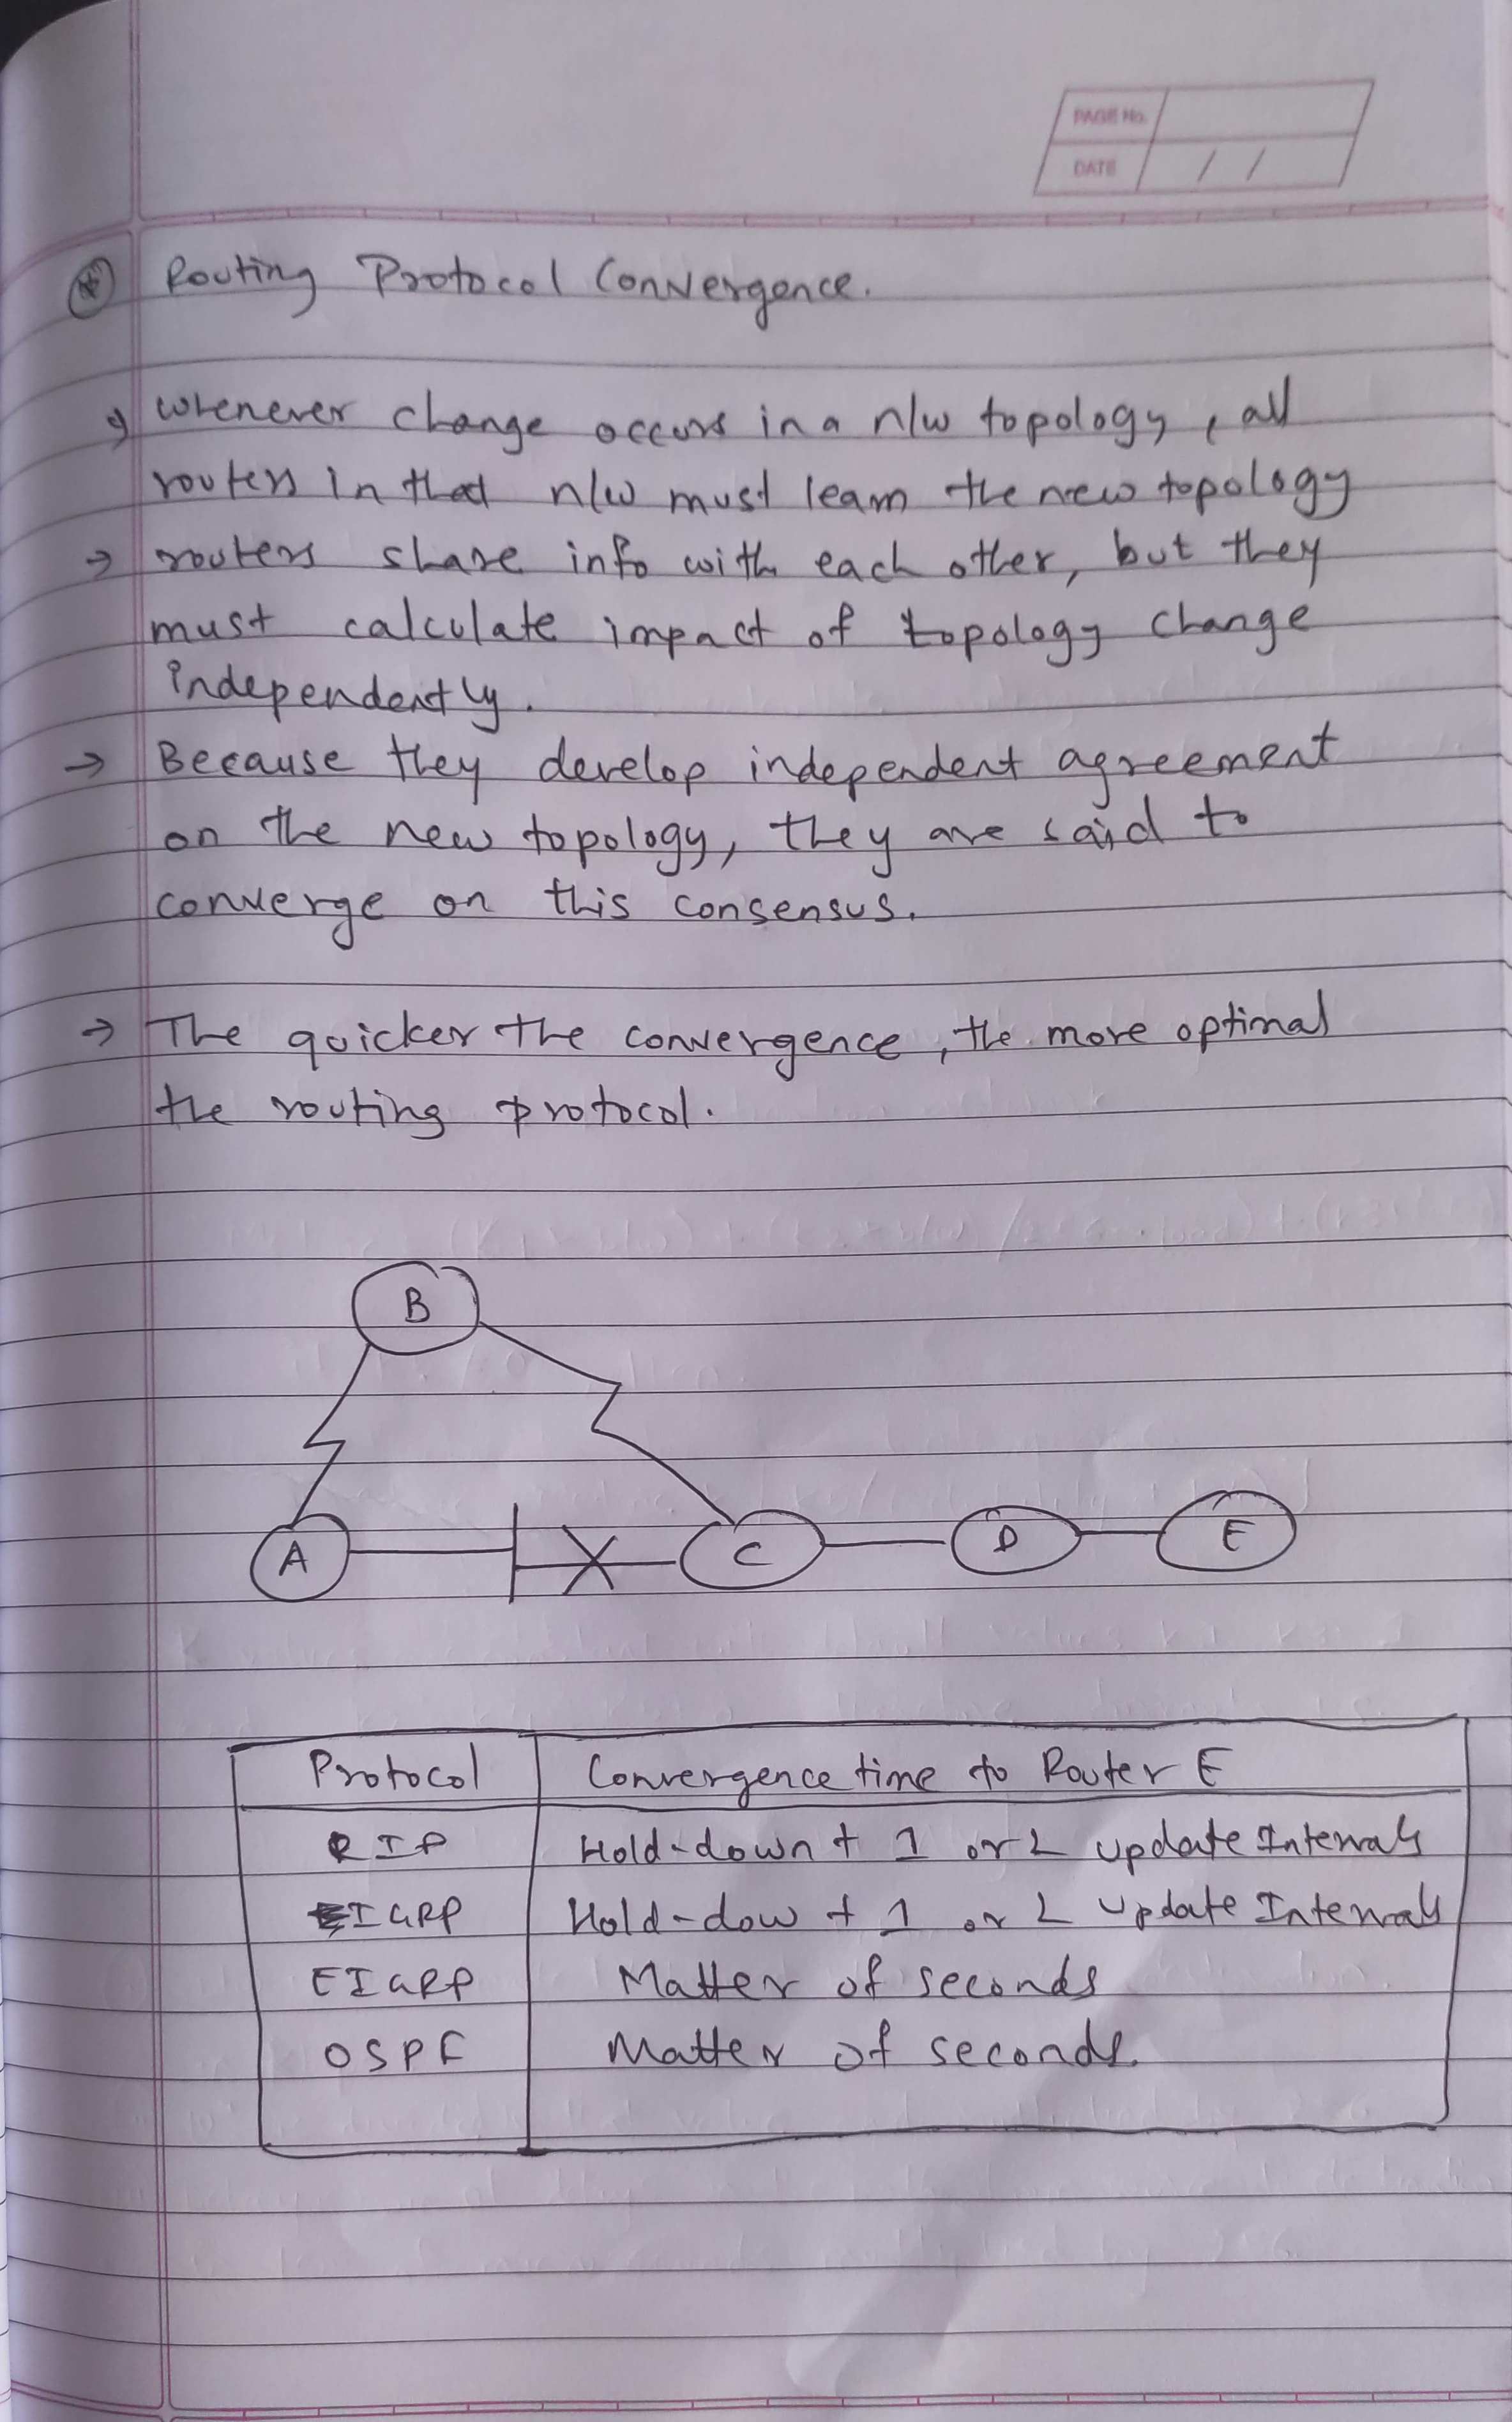 PAGE No.
DATE / /
Routing Protocol Convergence.
→ whenever change occurs in a n/w topology, all
routers in that n/w must learn the new topology
→ routers share info with each other, but they
must calculate impact of topology change
independently.
→ Because they develop independent agreement
on the new topology, they are said to
converge on this consensus.
→ The quicker the convergence, the more optimal
the routing protocol.
B
A C D E
Protocol Convergence time to Router E
RIP Hold-down + 1 or 2 update Intervals
IGRP Hold-dow + 1 or 2 update Intervals
EIGRP Matter of seconds
OSPF Matter of seconds.